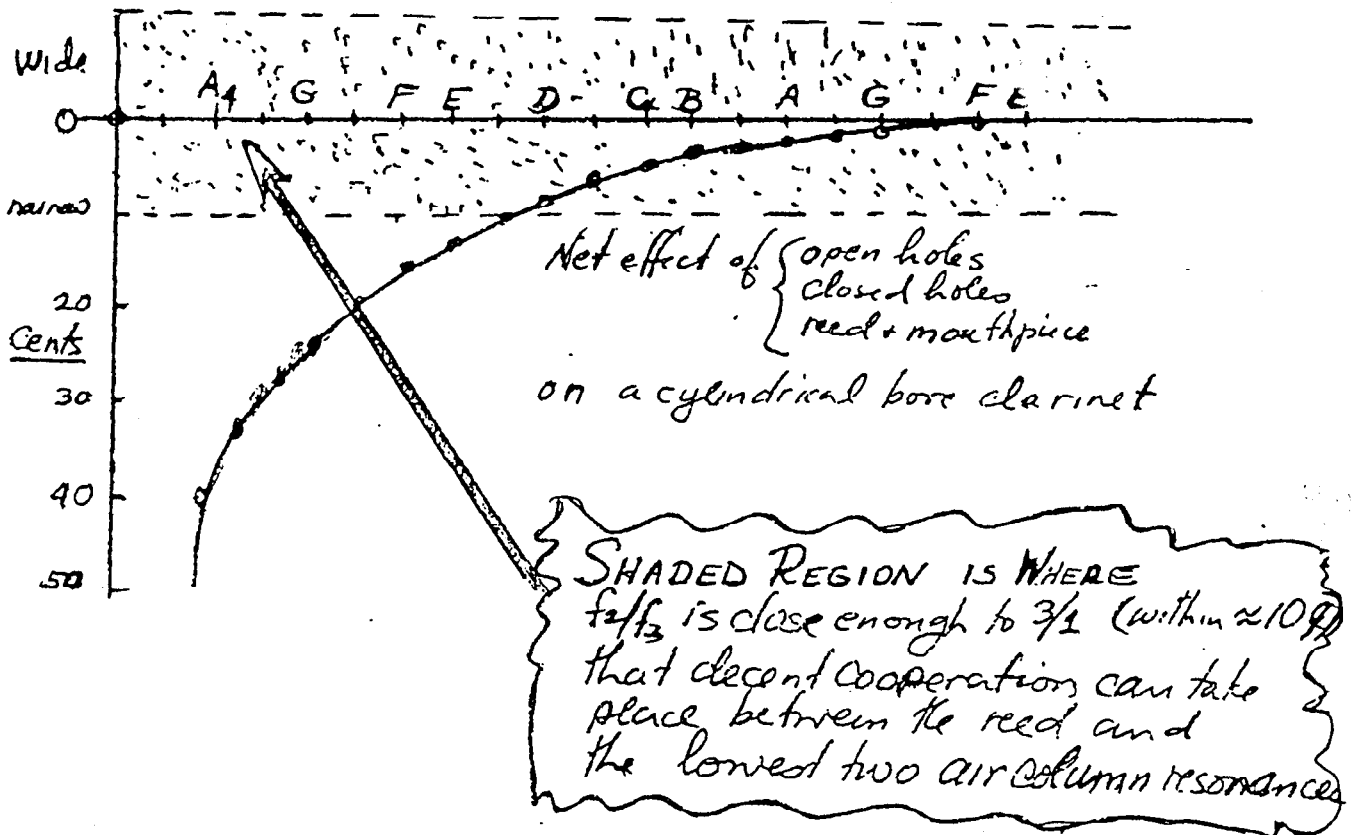 Wide
A4 G F E D C B A G F E
0
narrow
20
Cents
30
40
50
Net effect of { open holes
closed holes
reed + mouthpiece
on a cylindrical bore clarinet
SHADED REGION IS WHERE
f2/f3 is close enough to 3/1 (within ≈10¢)
that decent cooperation can take
place between the reed and
the lowest two air column resonances